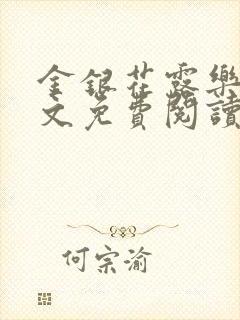 金銀花露樂
文免費閱讀
何宗渝